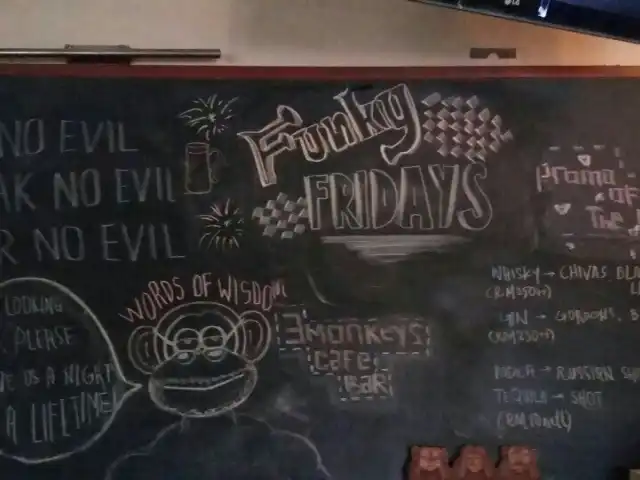 NO EVIL
AK NO EVIL
R NO EVIL
Funky
FRIDAYS
promo
of
The
WORDS OF WISDOM
LOOKING
PLEASE
US A NIGHT
A LIFETIME!
3MONKEYS
CAFE
BAR
WHISKY → CHIVAS, BLA
(RM250++)
GIN → GORDONS, B
(RM250++)
→ RUSSIAN
TEQUILA → SHOT